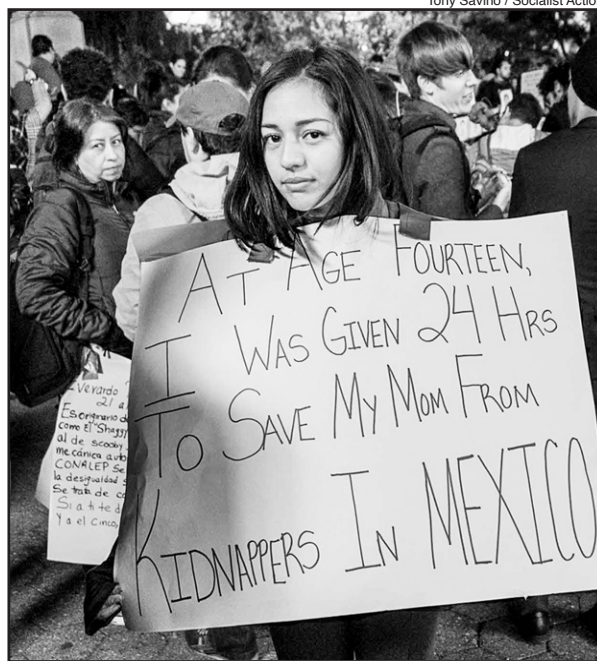 Tony Savino / Socialist Action
AT AGE FOURTEEN,
I WAS GIVEN 24 HRS
TO SAVE MY MOM FROM
KIDNAPPERS IN MEXICO
Everardo
21 a
Es originario d
como El "Shaggy
al de scooby
mecánica auto
CONALEP Se
la desigualdad s
Se trata de co
Si a ti te d
Y a el Cinco,